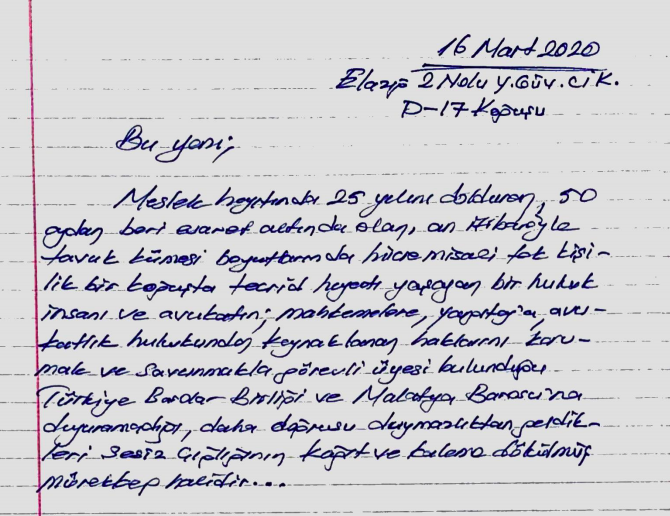 16 Mart 2020
Elazığ 2 Nolu Y.Güv.CİK.
D-17 Koğuşu
Bu yazı;
Meslek hayatında 25 yılını dolduran, 50
aydan beri esaret altında olan, an itibarıyla
tavuk kümesi boyutlarında hücre misali tek kişi-
lik bir koğuşta tecrid hayatı yaşayan bir hukuk
insanı ve avukatın; mahkemelere, yargıtay'a, avu-
katlık hukukundan kaynaklanan haklarını koru-
mak ve savunmakla görevli üyesi bulunduğu
Türkiye Barolar Birliği ve Malatya Barosu'na
duyuramadığı, daha doğrusu duymazlıktan geldik-
leri sessiz çığlığının kağıt ve kaleme dökülmüş
mürekkep halidir...